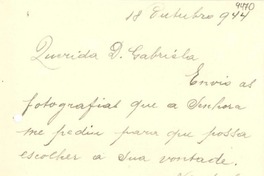 9470
18 Outubro 944
Querida D. Gabriela
Envio as
fotografias que a Senhora
me pediu para que possa
escolher a sua vontade.